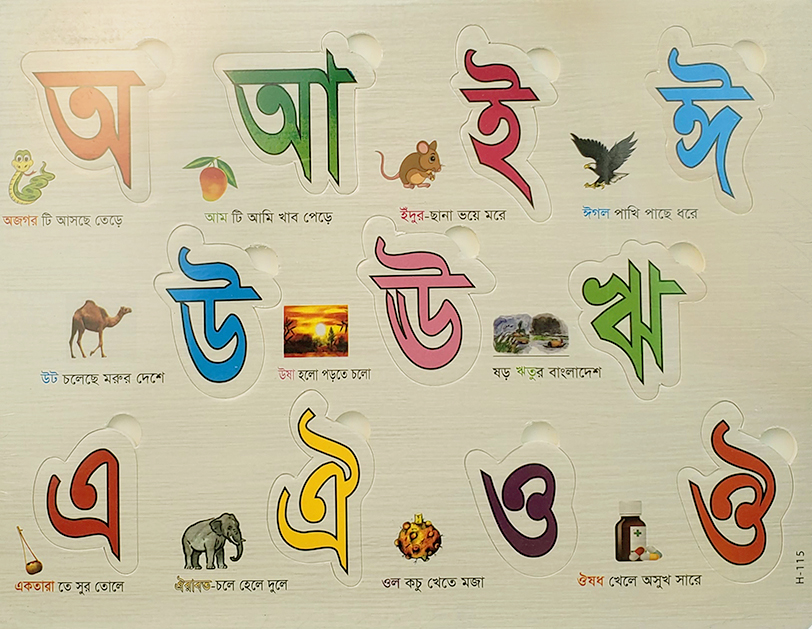 অ আ ই ঈ
অজগর টি আসছে তেড়ে
আম টি আমি খাব পেড়ে
ইঁদুর-ছানা ভয়ে মরে
ঈগল পাখি পাছে ধরে
উ ঊ ঋ
উট চলেছে মরুর দেশে
ঊষা হলো পড়তে চলো
ষড় ঋতুর বাংলাদেশ
এ ঐ ও ঔ
একতারা তে সুর তোলে
ঐরাবত-চলে হেলে দুলে
ওল কচু খেতে মজা
ঔষধ খেলে অসুখ সারে
H-115